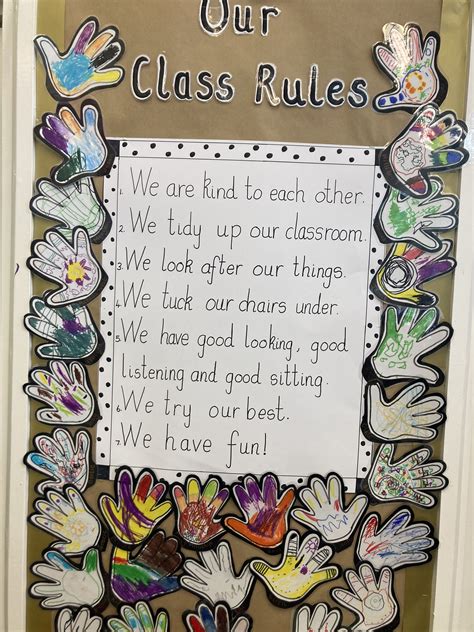 Our
Class Rules
1. We are kind to each other.
2. We tidy up our classroom.
3. We look after our things.
4. We tuck our chairs under.
5. We have good looking, good
listening and good sitting.
6. We try our best.
7. We have fun!